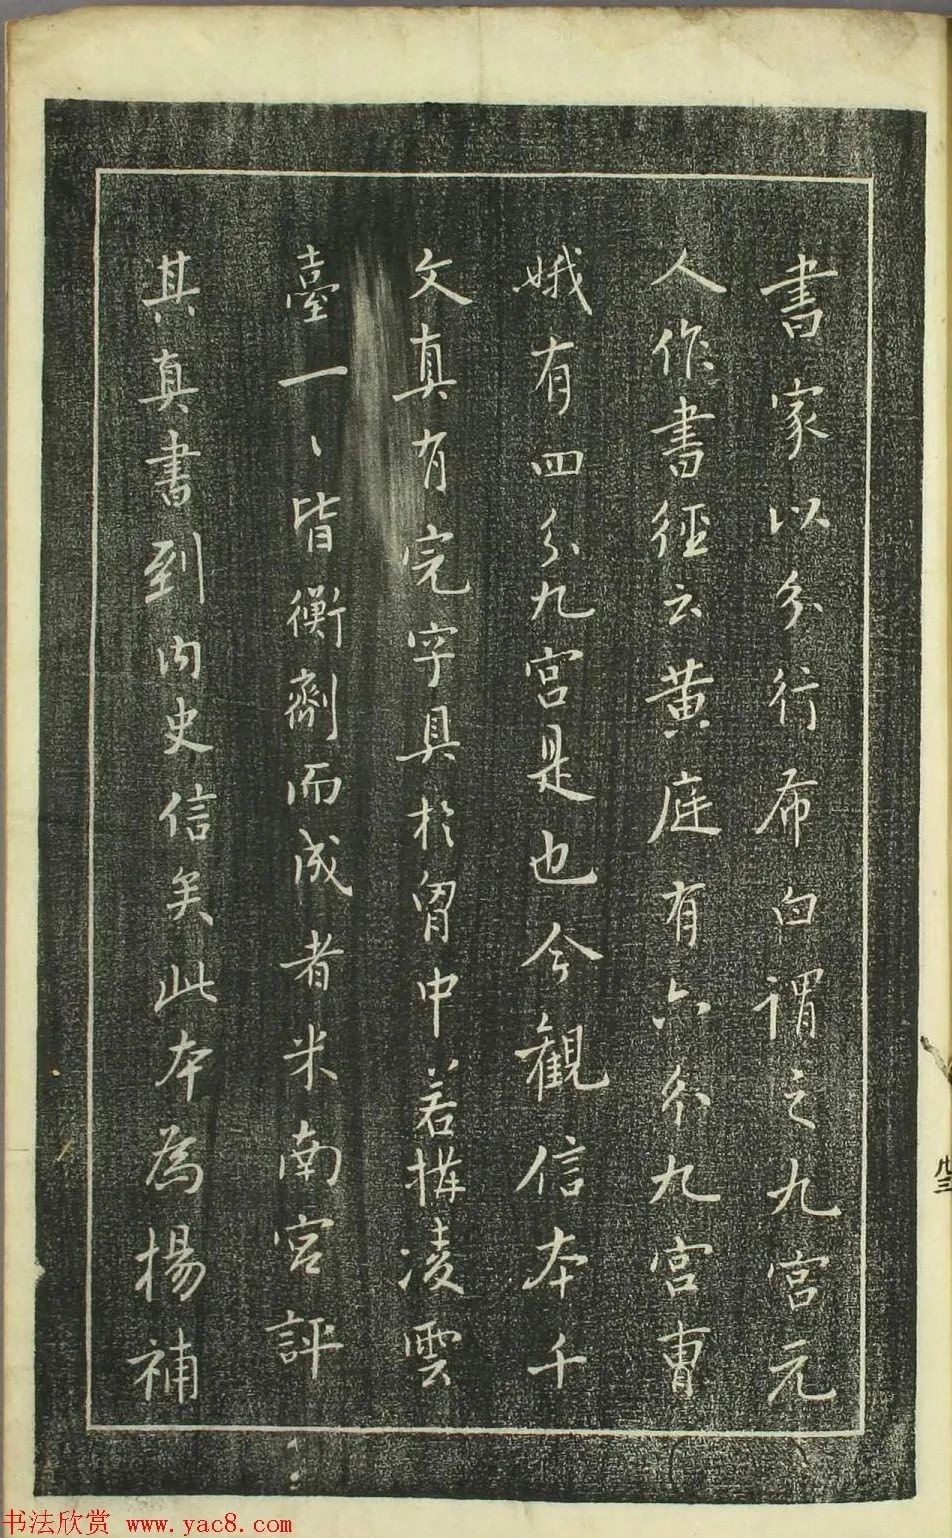 書家以分行布白謂之九宮元
人作書徑云黃庭有六分九宮曹
娥有四分九宮是也今觀信本千
文真有完字具於胷中若構凌雲
臺一〻皆衡劑而成者米南宮評
其真書到內史信矣此本為楊補
卅三
书法欣赏 www.yac8.com